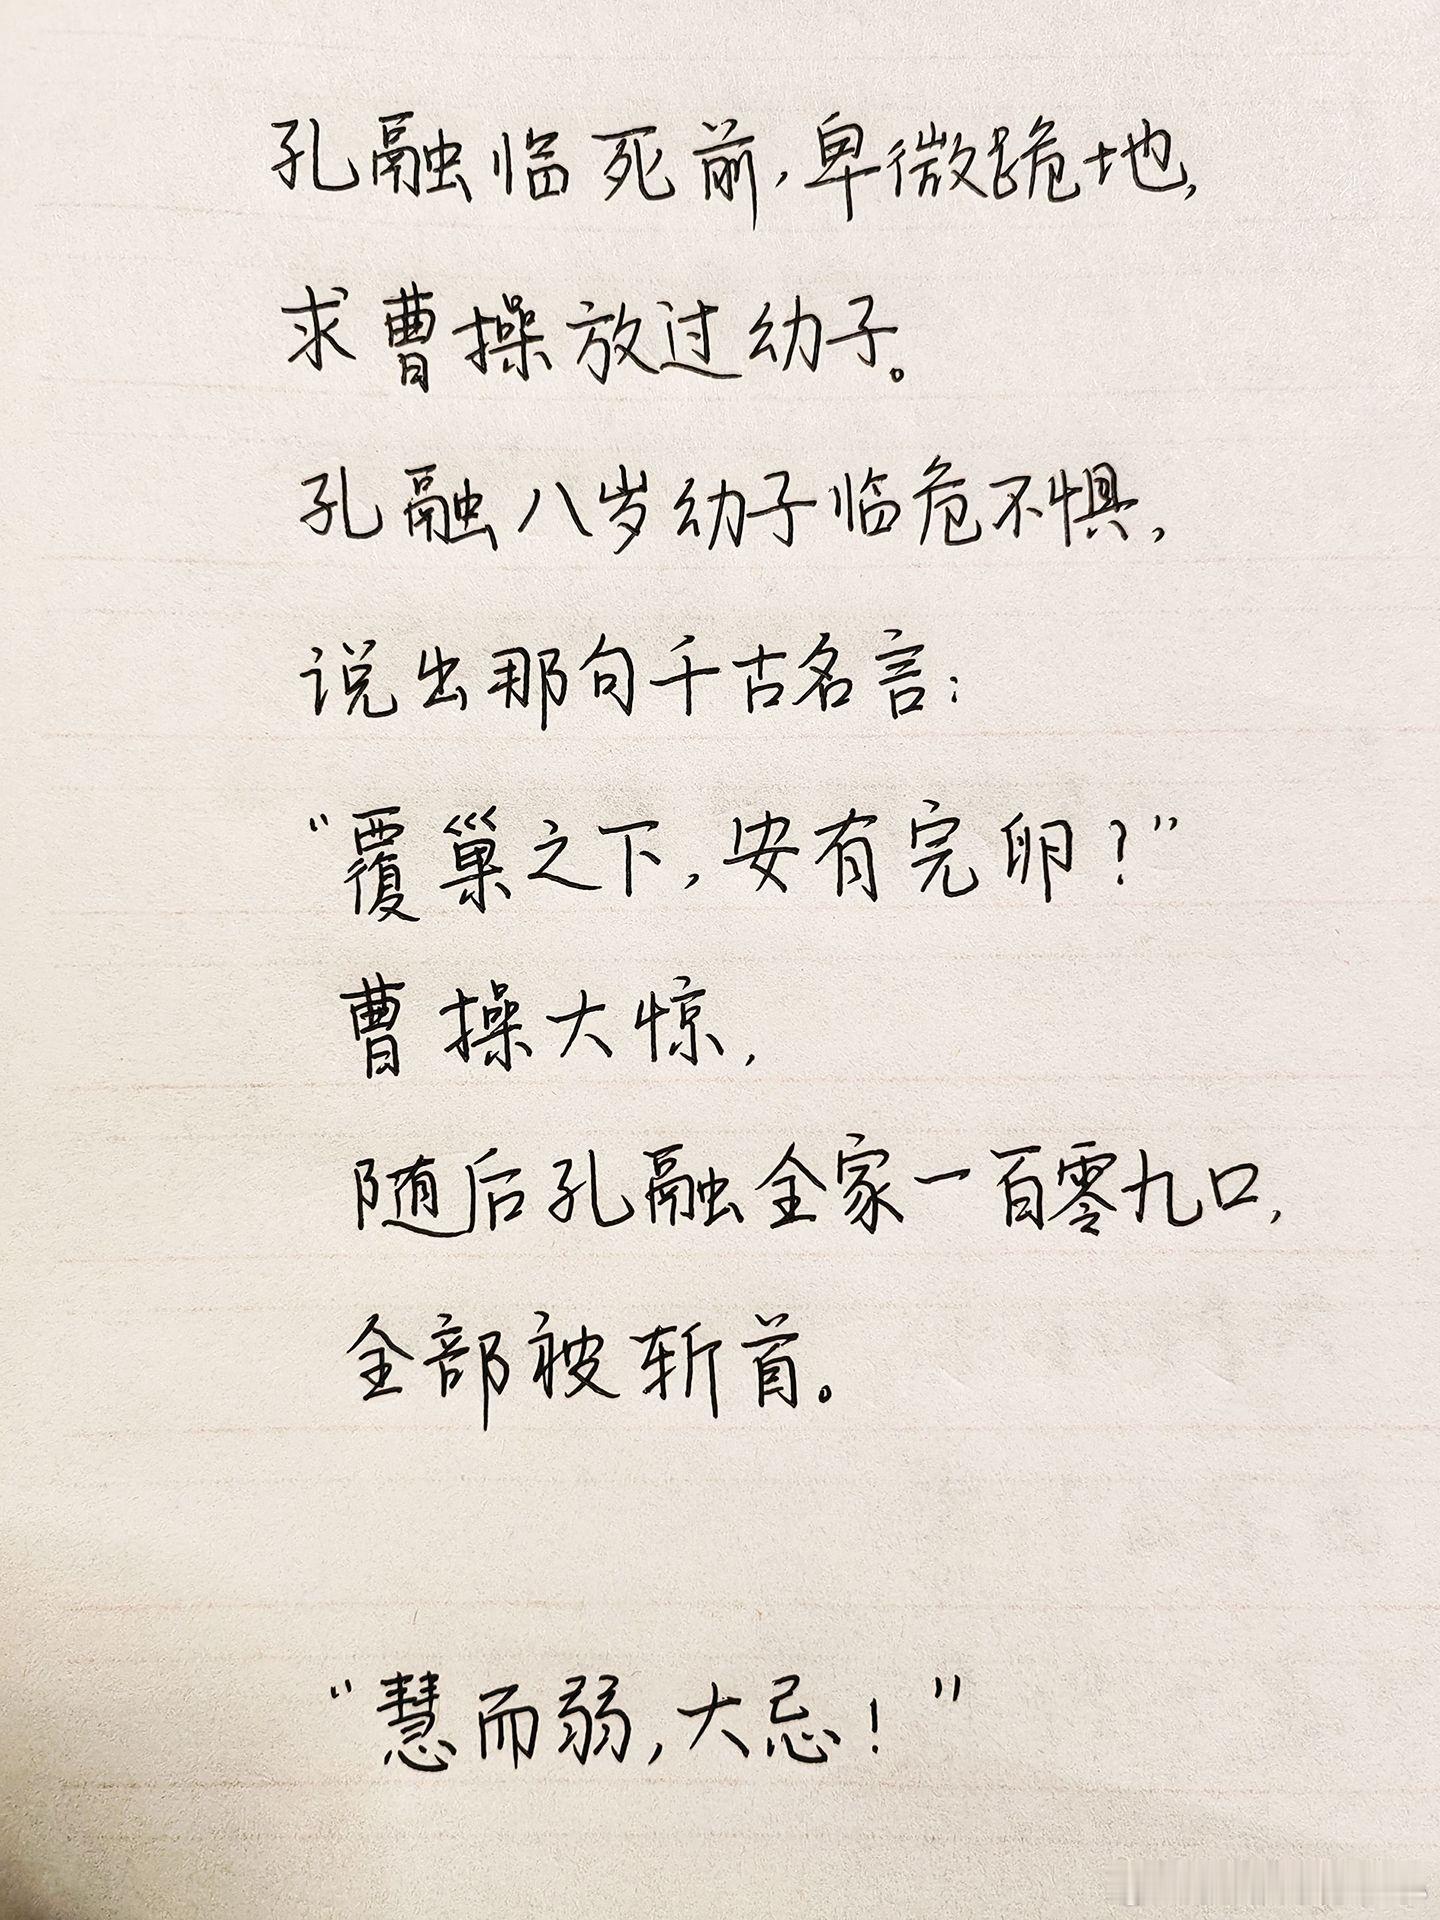 孔融临死前,卑微跪地,
求曹操放过幼子。
孔融八岁幼子临危不惧,
说出那句千古名言:
“覆巢之下,安有完卵?”
曹操大惊,
随后孔融全家一百零九口,
全部被斩首。
“慧而弱,大忌!”